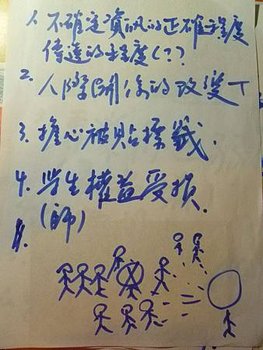 1. 不確定資訊的正確程度
傳達的程度(??)
2. 人際關係的改變
3. 擔心被貼標籤.
4. 學生權益受損.
(師)
5.